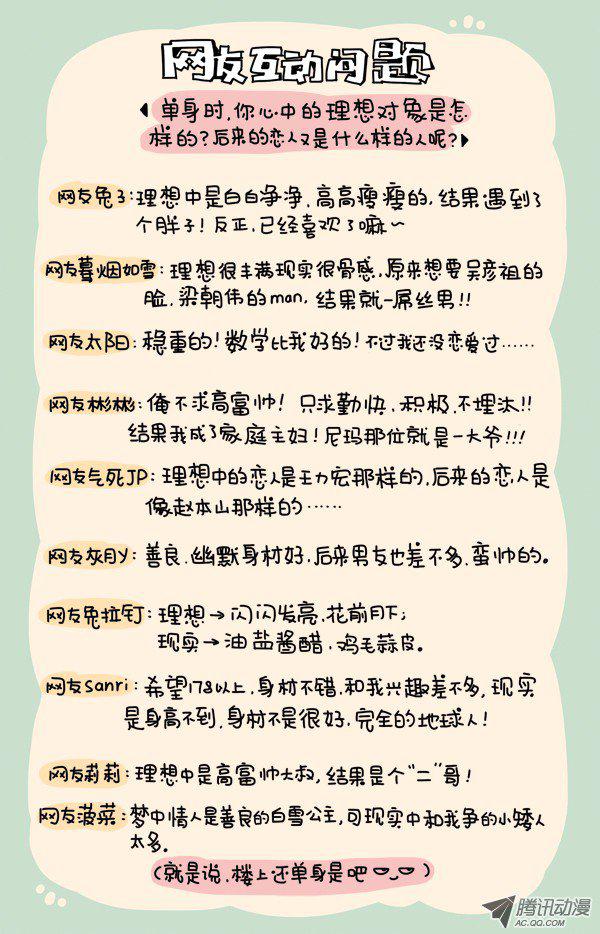 网友互动问题
单身时,你心中的理想对象是怎
样的?后来的恋人又是什么样的人呢?
网友兔子:理想中是白白争净、高高瘦瘦的,结果遇到了
个胖子!反正,已经喜欢了嘛~
网友暮烟如雪:理想很丰满现实很骨感,原来想要吴彦祖的
脸,梁朝伟的man,结果就一屌丝男!!
网友太阳:稳重的!数学比我好的!不过我还没恋爱过……
网友彬彬:俺不求高富帅!只求勤快,积极,不埋汰!!
结果我成了家庭主妇!尼玛那位就是一大爷!!!
网友气死JP:理想中的恋人是王力宏那样的,后来的恋人是
像赵本山那样的……
网友灰月Y:善良,幽默身材好,后来男友也差不多,蛮帅的。
网友兔拉钉:理想→闪闪发亮,花前月下;
现实→油盐酱醋,鸡毛蒜皮。
网友sanri:希望178以上,身材不错,和我兴趣差不多,现实
是身高不到,身材不是很好,完全的地球人!
网友莉莉:理想中是高富帅大叔,结果是个"二"哥!
网友菠菜:梦中情人是善良的白雪公主,可现实中和我争的小矮人
太多。
(就是说,楼上还单身是吧)
腾讯动漫
AC.QQ.COM